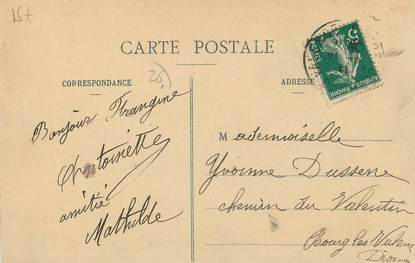 15 €
CARTE POSTALE
CORRESPONDANCE
26.
ADRESSE
5
Bonjour Frangine
Antoinette
amitié
Mathilde
Mademoiselle
Yvonne Dussere
chemin du Valentin
Bourg les Valence
Drôme